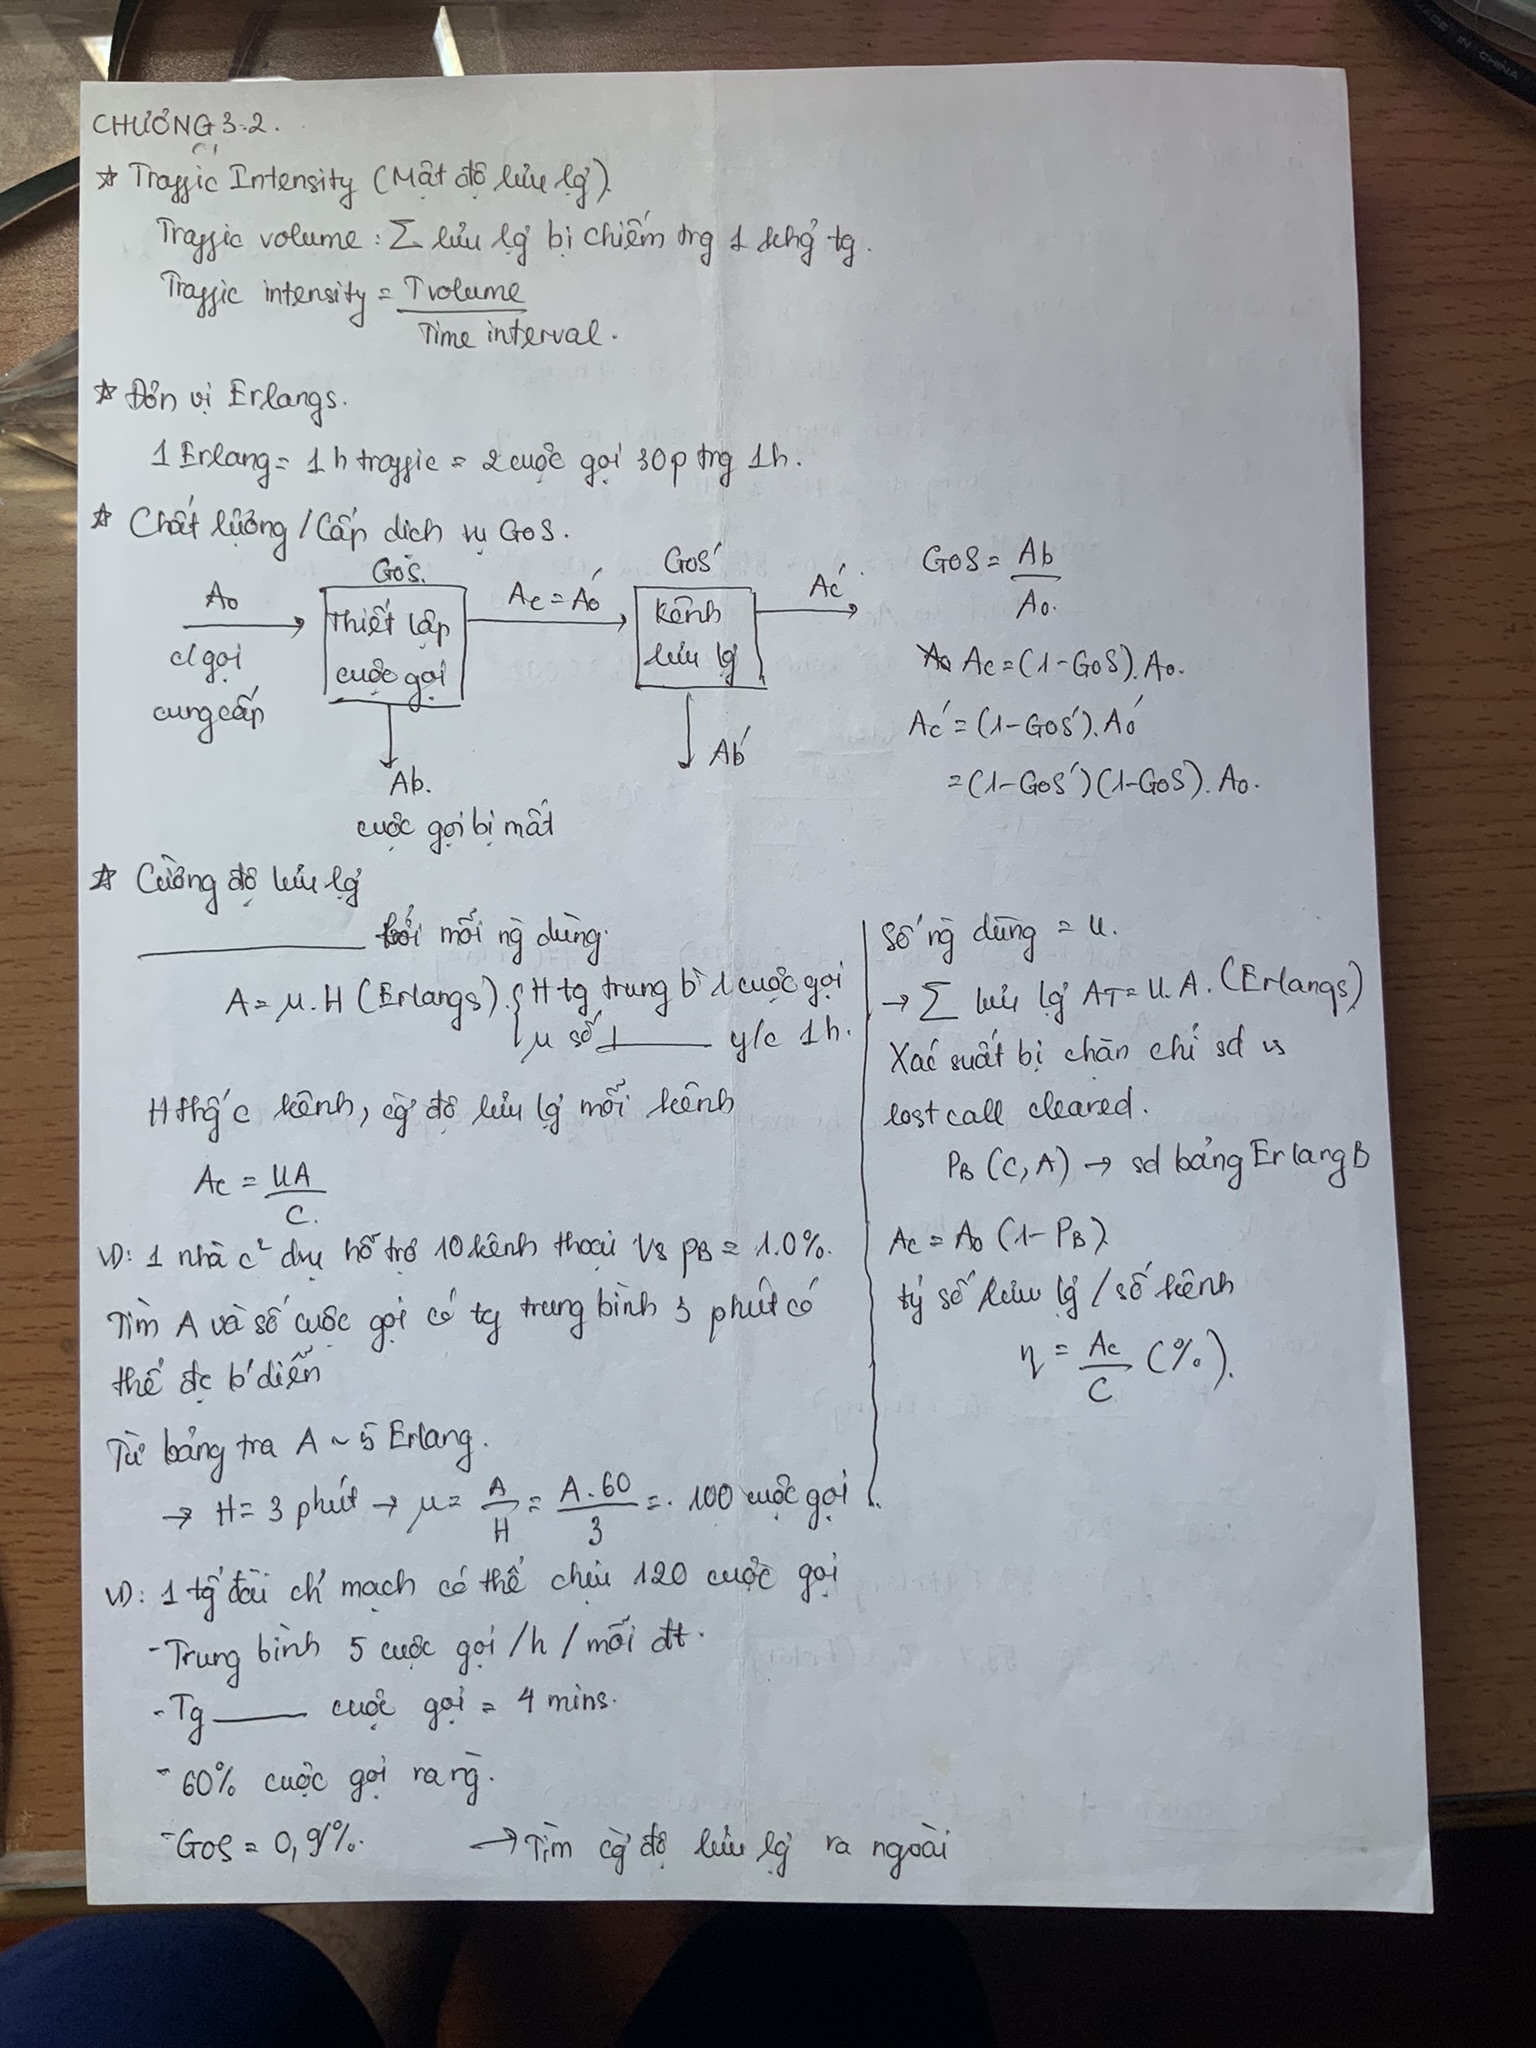 CHƯƠNG 3-2.
* Traffic Intensity (Mật độ lưu lg)
Traffic volume : Σ lưu lg bị chiếm trg 1 khg tg.
Traffic intensity = Tvolume / Time interval.
* Đơn vị Erlangs.
1 Erlang = 1h traffic = 2 cuộc gọi 30p trg 1h.
* Chất lượng / Cấp dịch vụ GOS.
GOS.
Ao
cl gọi
cung cấp
Thiết lập
cuộc gọi
Ac = Ao'
GOS'
Kênh
lưu lg
Ac'
Ab.
cuộc gọi bị mất
Ab'
GOS = Ab / Ao.
Ac = (1 - GOS). Ao.
Ac' = (1 - GOS'). Ao'
= (1 - GOS')(1 - GOS). Ao.
* Cường độ lưu lg
mỗi ng dùng.
A = μ.H (Erlangs). { H tg trung bì 1 cuộc gọi
μ số 1 y/c 1h.
H thg C kênh, cg độ lưu lg mỗi kênh
Ac = UA / C.
VD: 1 nhà c² dvụ hỗ trợ 10 kênh thoại vs PB = 1.0%.
Tìm A và số cuộc gọi có tg trung bình 3 phút có
thể đc b' diễn
Từ bảng tra A ~ 5 Erlang.
→ H = 3 phút → μ = A / H = A.60 / 3 = 100 cuộc gọi
VD: 1 tg đài ch' mạch có thể chịu 120 cuộc gọi
- Trung bình 5 cuộc gọi /h / mỗi đt.
- Tg cuộc gọi = 4 mins.
- 60% cuộc gọi ra ng.
- GOS = 0,9%. → Tìm cg độ lưu lg ra ngoài
Số ng dùng = U.
→ Σ lưu lg AT = U.A. (Erlangs)
Xác suất bị chặn chỉ sd vs
lost call cleared.
PB (C, A) → sd bảng Erlang B
Ac = Ao (1 - PB)
tỷ số lưu lg / số kênh
η = Ac / C (%).
MADE IN CHINA